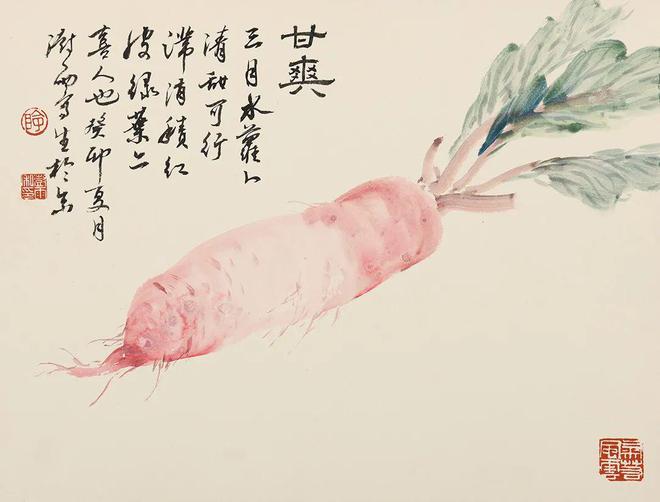 甘爽
三月水蘿卜
清甜可行
滞消積红
皮绿葉亦
喜人也癸卯夏月
澍雨寫生於京